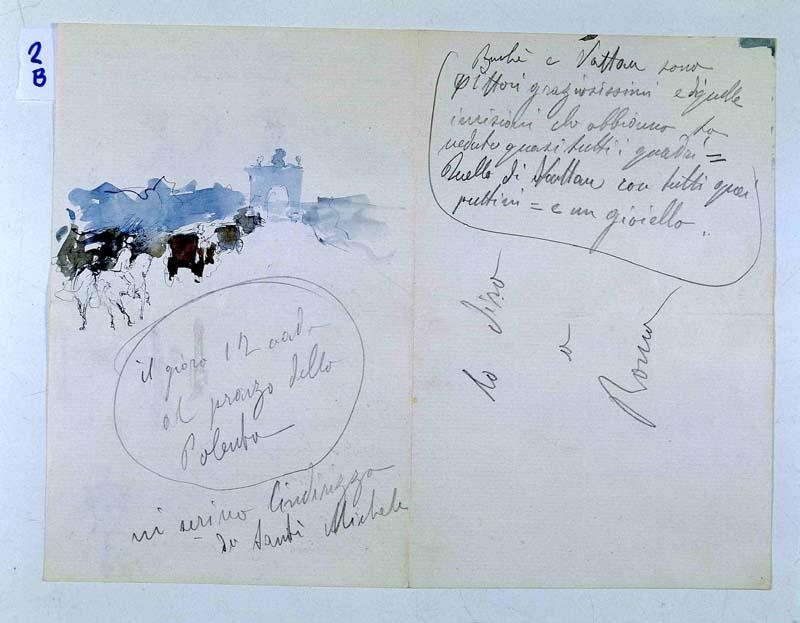 2
B
il giorno 12 vado
al pranzo della
Polenta
mi scrivo l'indirizzo
de Santi Michele
e Vattau sono
pittori graziosissimi e di quelle
incisioni che abbiamo
veduto quasi tutti i quadri =
Quello di Vattau con tutti quei
puttini = e un gioiello ..
lo
a
Roma